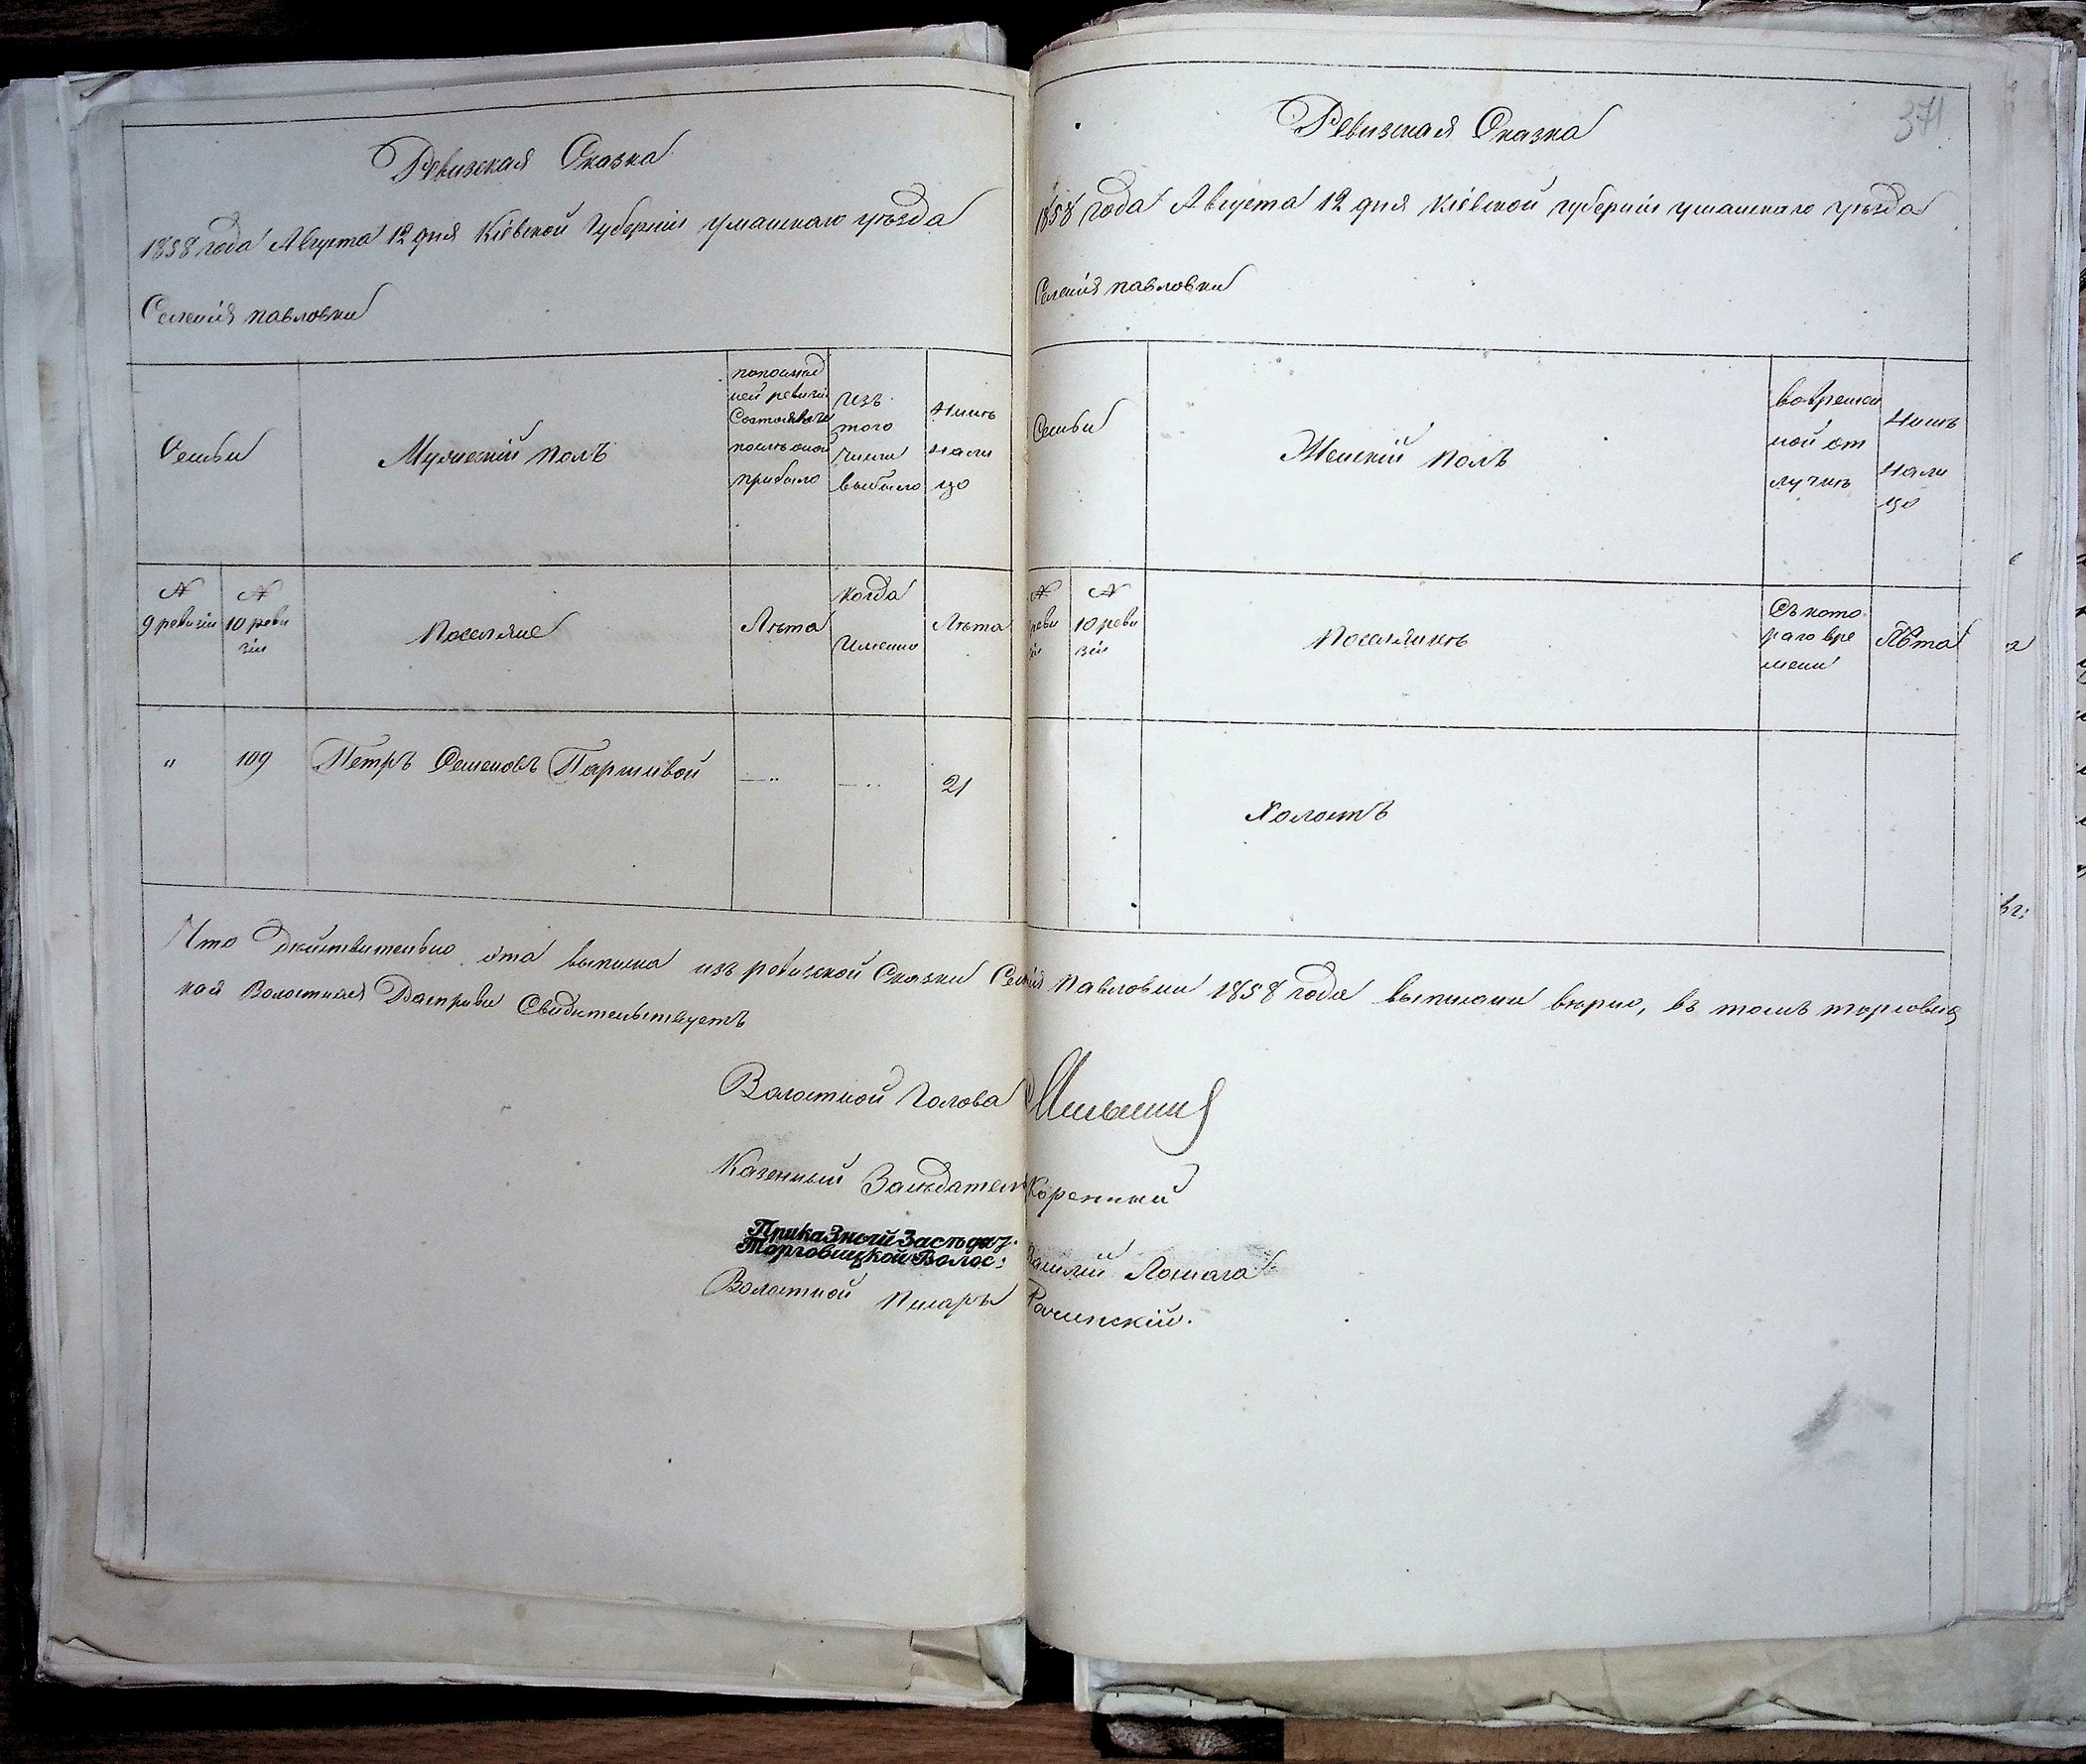 Ревизская Сказка
1858 года Августа 12 дня Кіевской Губерніи уманскаго уѣзда
Селенія павловки
Семьи
Мужескій полъ
попослѣд
ней ревизіи
Состояло и
послѣ оной
прибыло
Изъ
того
числа
выбыло
Нынѣ
Нали
цо
N
9 ревизіи
N
10 реви
зіи
Поселяне
Лѣта
когда
Именно
Лѣта
"
109
Петръ Семеновъ Паршивой
21
371
Ревизская Сказка
1858 года Августа 12 дня Кіевской губерніи уманскаго уѣзда
Селенія павловки
Семьи
Женскій полъ
вовремен
ной от
лучкѣ
Нынѣ
Нали
цо
N
реви
зіи
N
10 реви
зіи
Поселянкѣ
Съ кото
раго вре
мени
Лѣта
Холостъ
Что дѣйствительно эта выписка изъ ревизской Сказки Селенія Павловки 1858 года выписана вѣрно, въ томъ торговиц
кая Волостная Расправа Свидѣтельствуетъ
Волостной Голова
Казенный Засѣдатель Коренный
Приказный Засѣдат.
Торговицкой Волос:
Василій Лошага
Волостной Писарь Рачинскій.